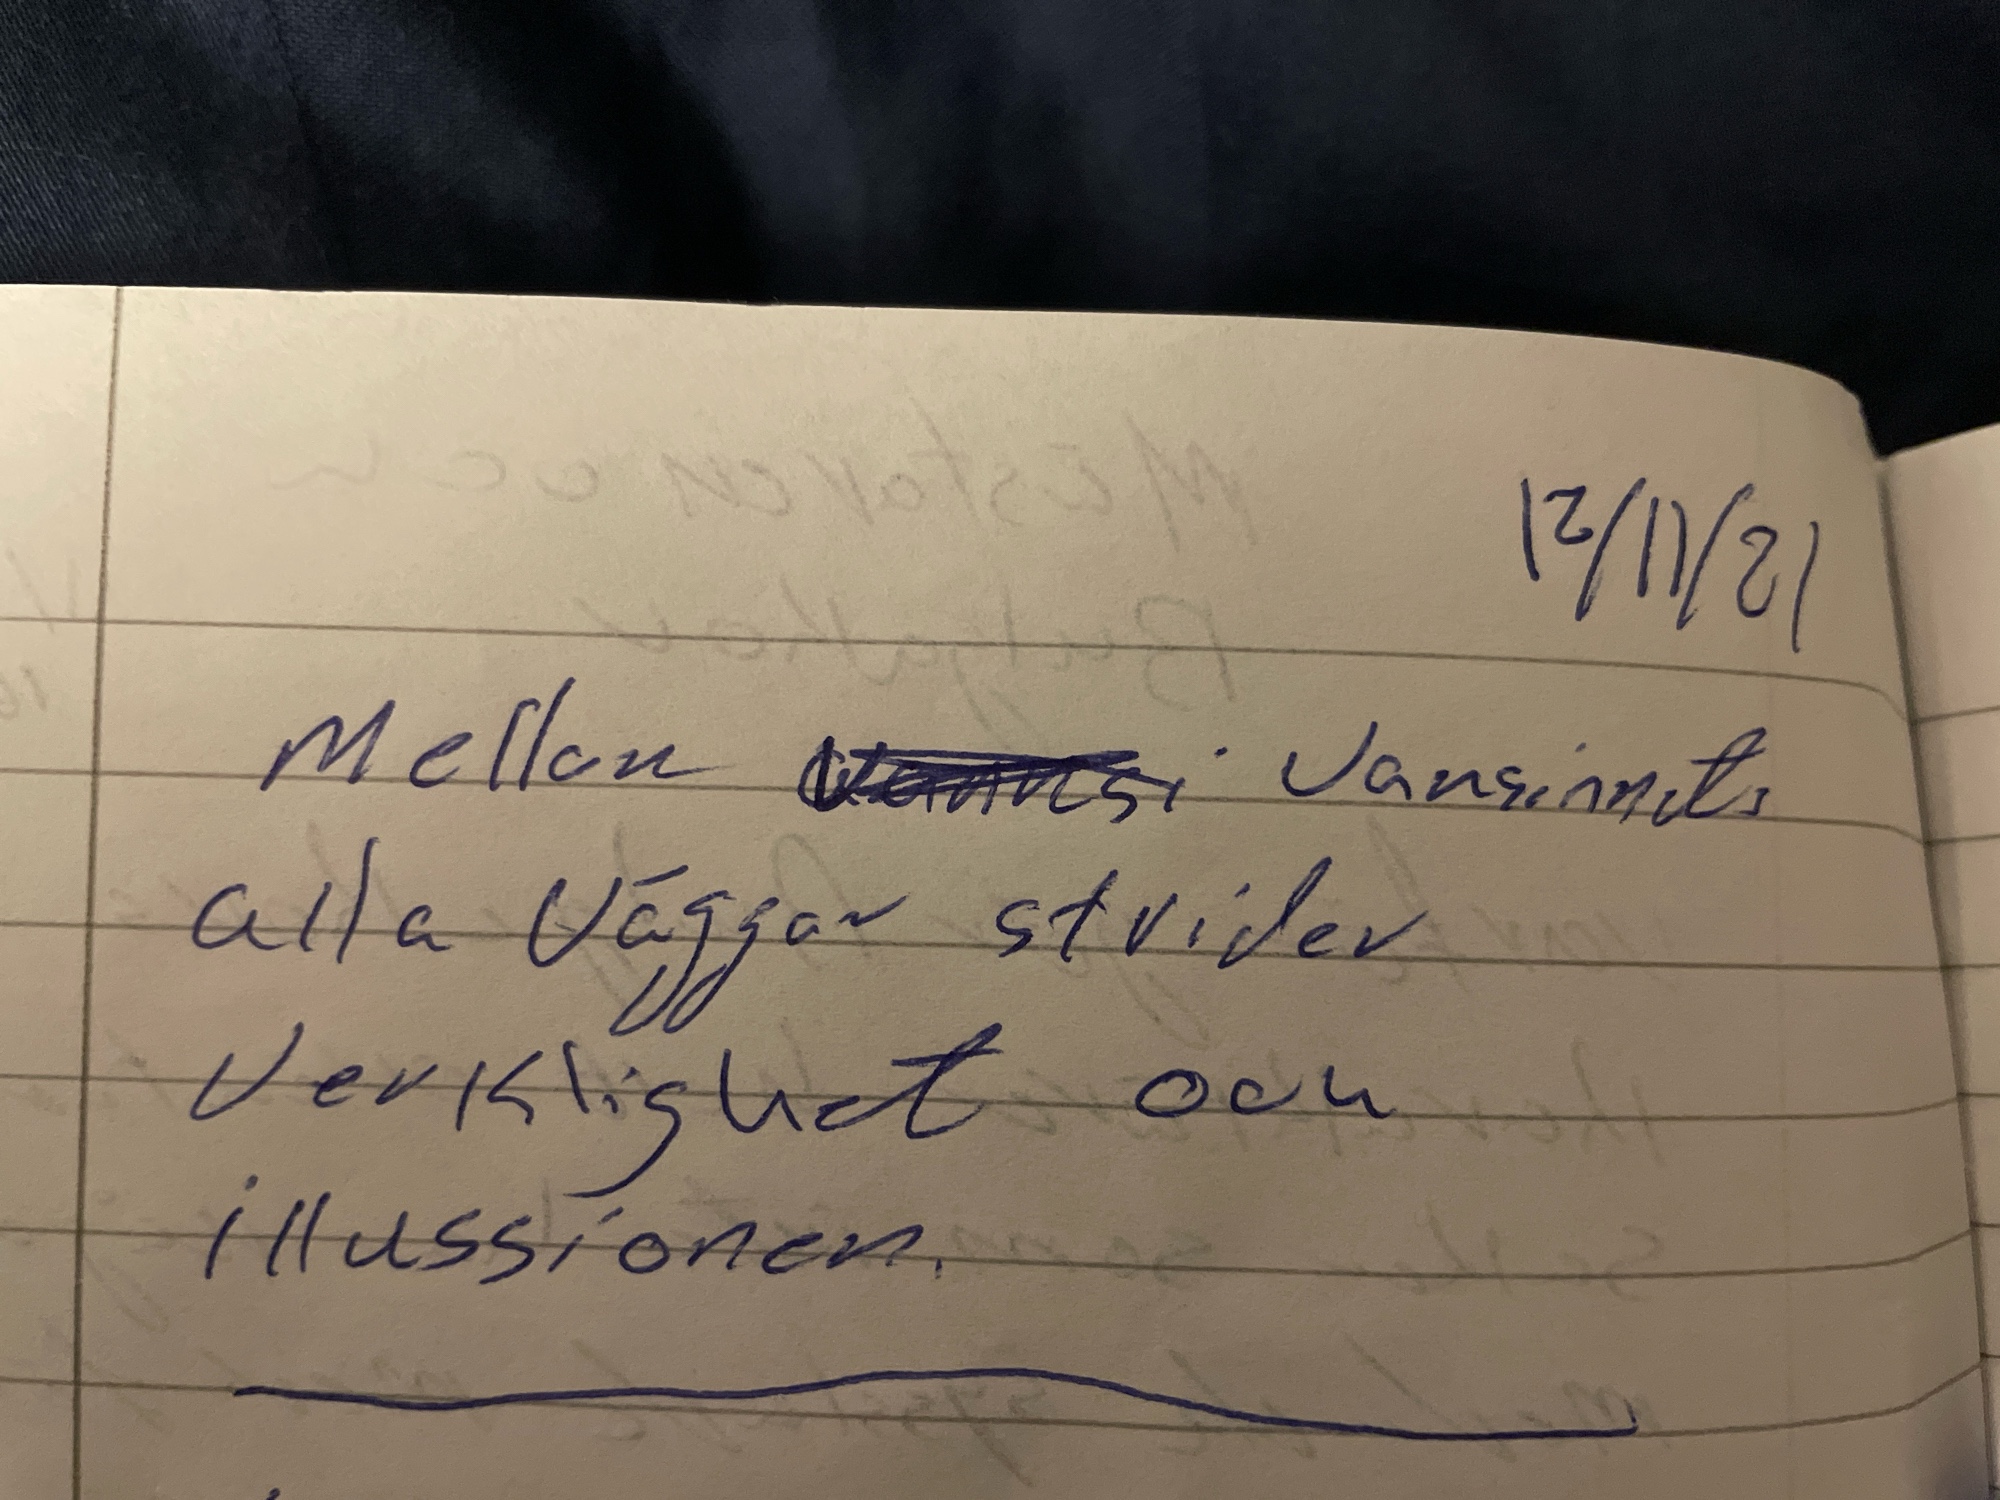 12/11/21
Mellan vansinnets
alla väggar strider
verklighet och
illussionen.